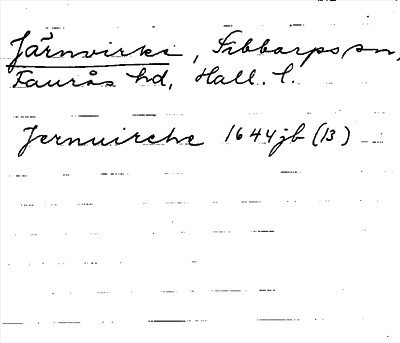 Järnvirke, Sibbarps sn,
Faurås hd, Hall. l.
Jernuirche 1644 jb (13)